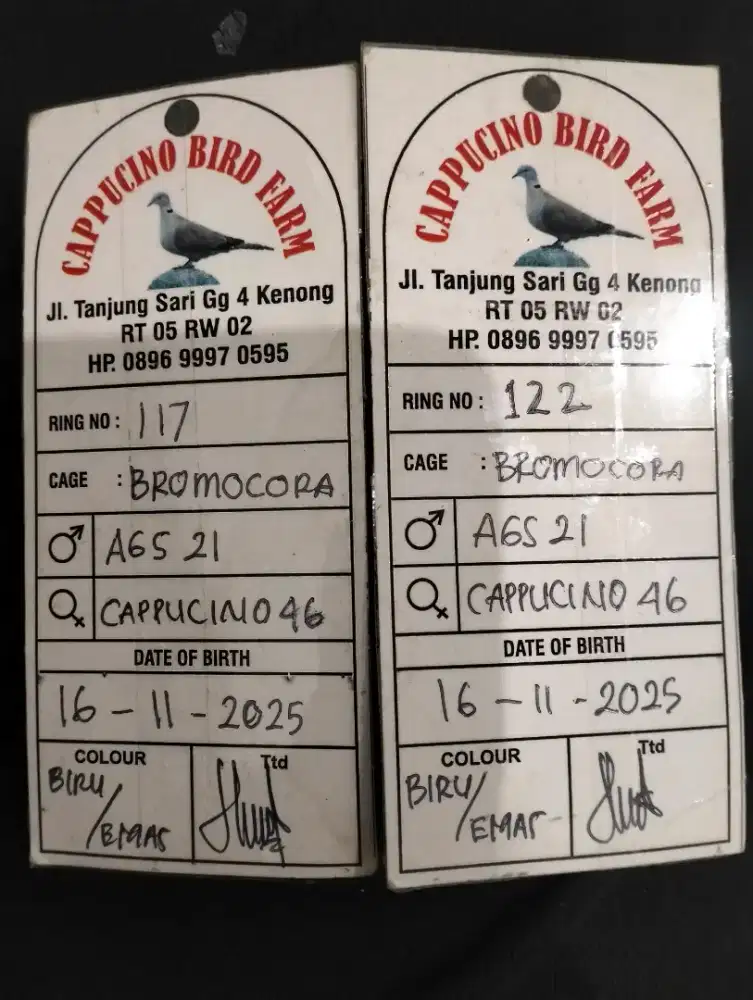 CAPPUCINO BIRD FARM
Jl. Tanjung Sari Gg 4 Kenong
RT 05 RW 02
HP. 0896 9997 0595
RING NO : 117
CAGE : BROMOCORA
♂ AGS 21
♀ CAPPUCINO 46
DATE OF BIRTH
16 - 11 - 2025
COLOUR
BIRU/
EMAS
Ttd
CAPPUCINO BIRD FARM
Jl. Tanjung Sari Gg 4 Kenong
RT 05 RW 02
HP. 0896 9997 0595
RING NO : 122
CAGE : BROMOCORA
♂ AGS 21
♀ CAPPUCINO 46
DATE OF BIRTH
16 - 11 - 2025
COLOUR
BIRU/
EMAS
Ttd